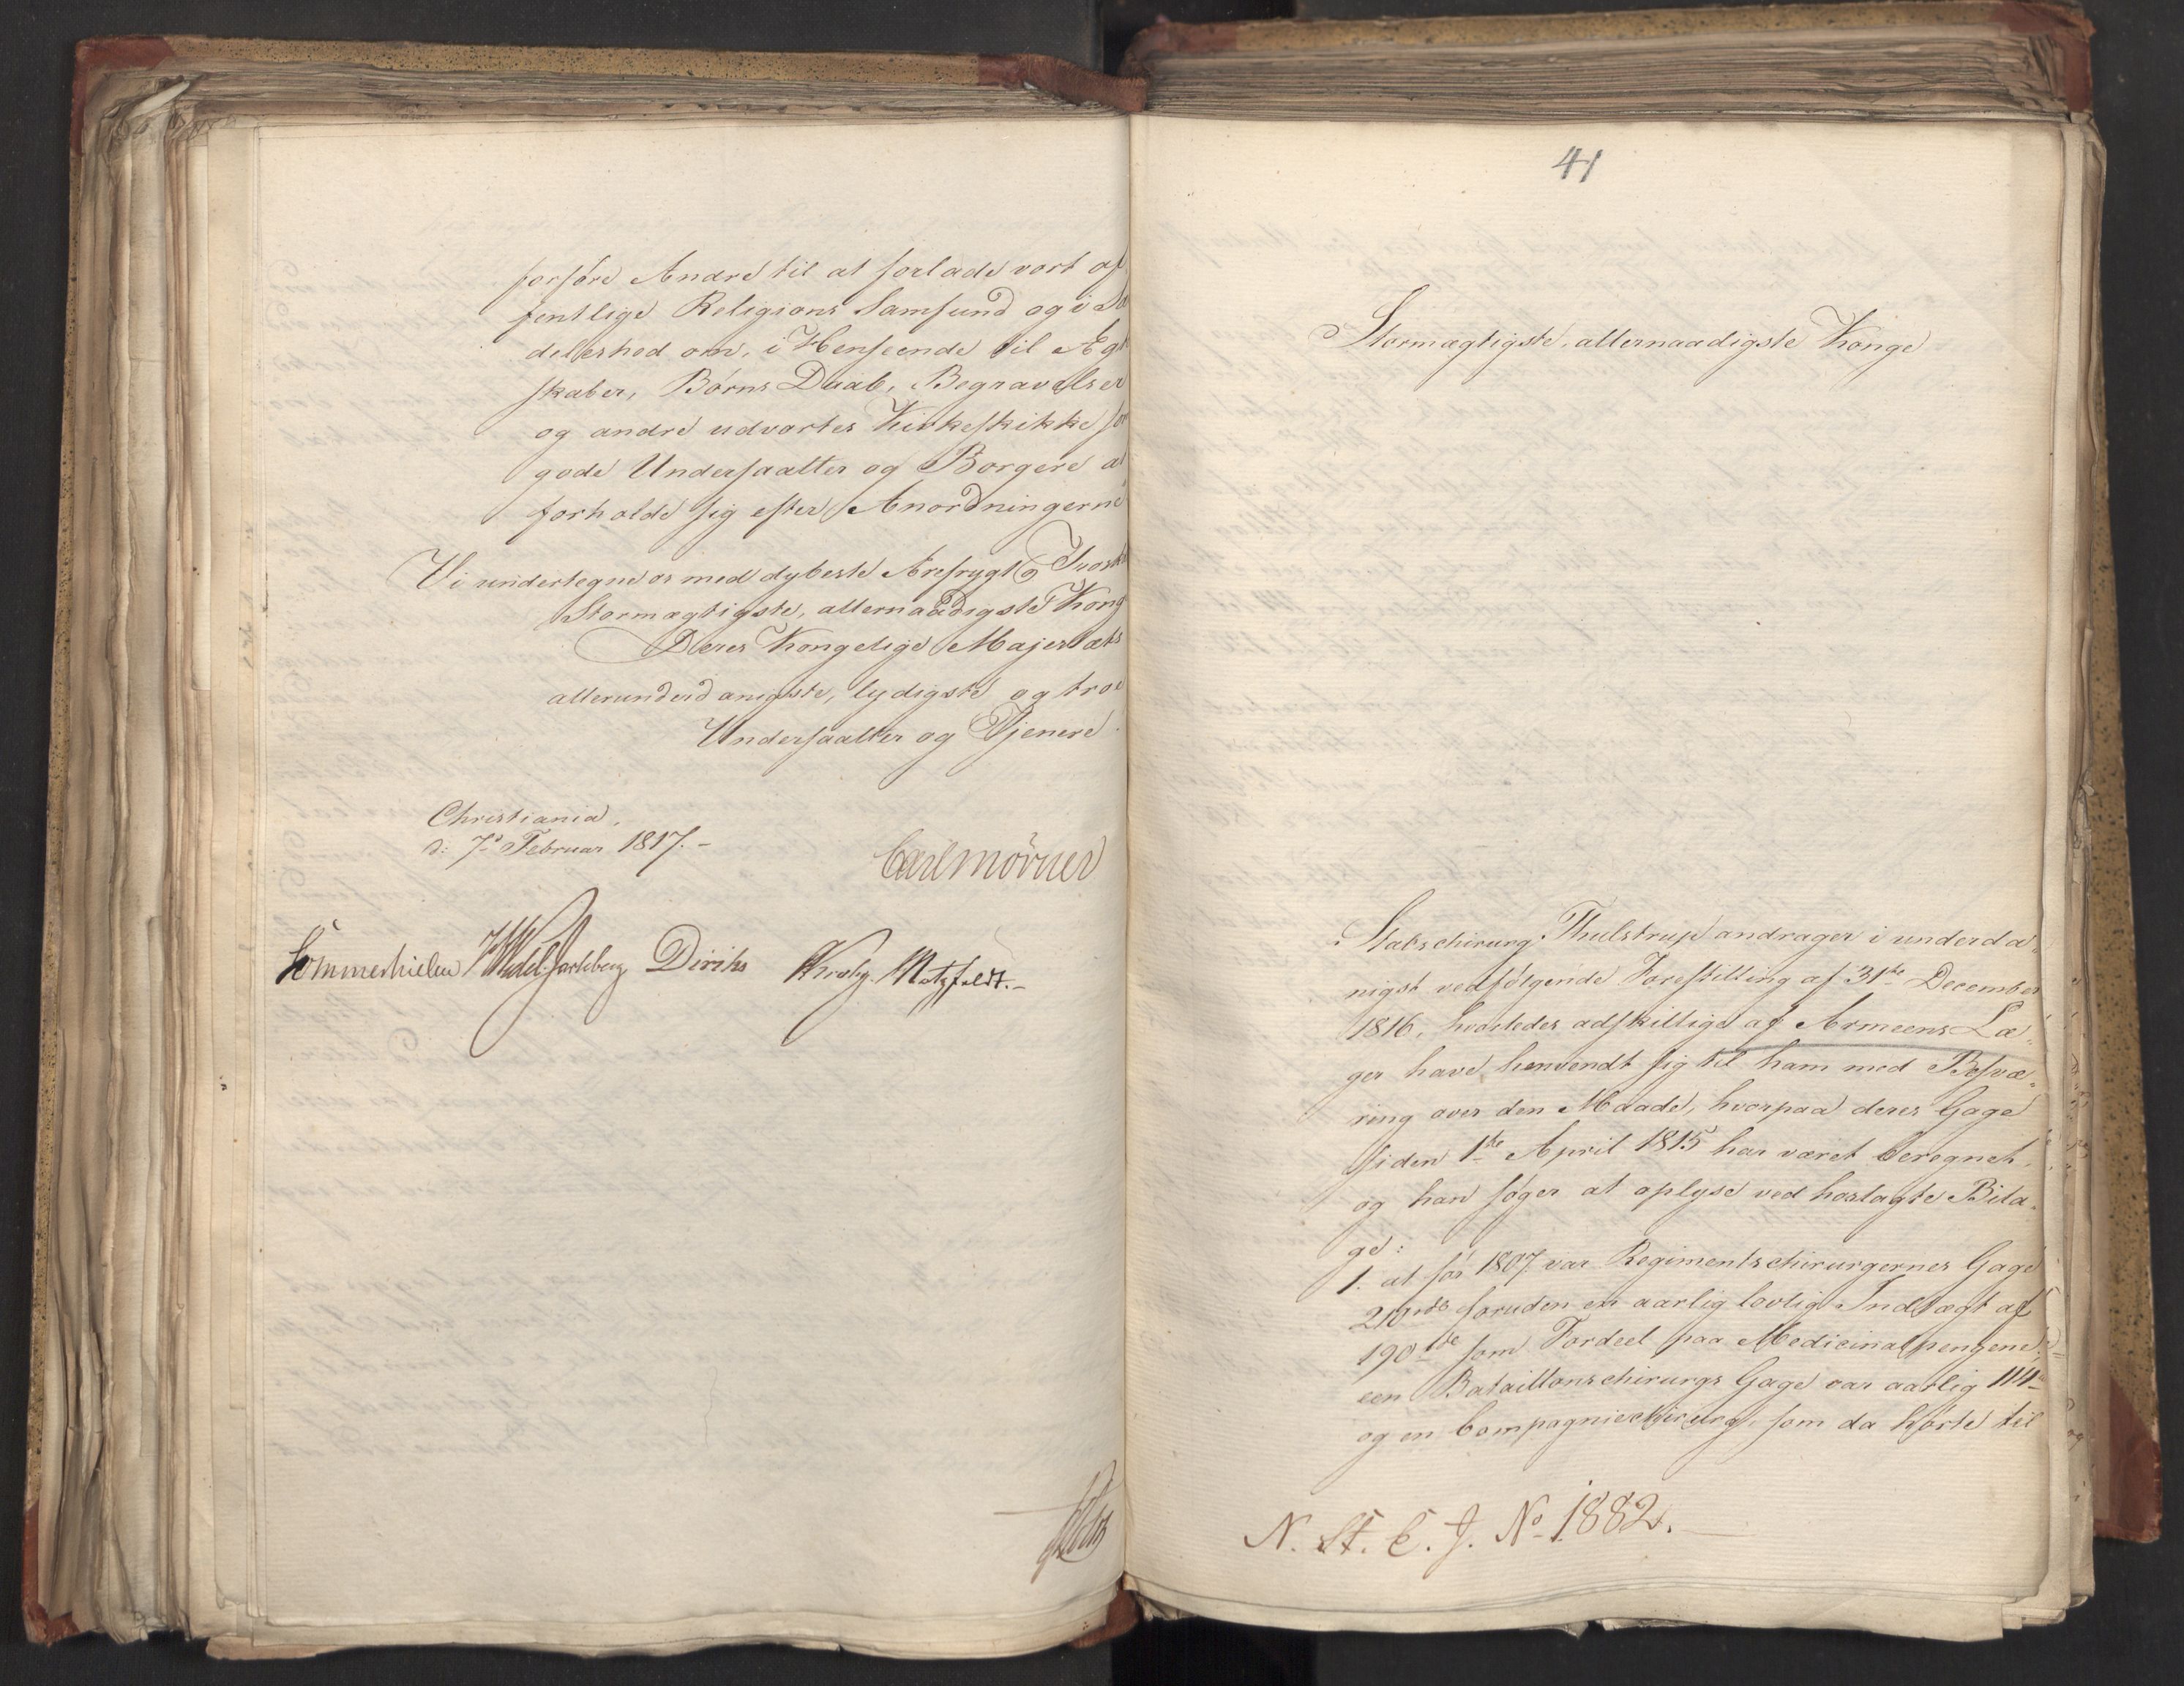 forføre Andre til at forlade vort of
fentlige Religions Samfund og i Sæ
deleshed om, i Henseende til Ægt
skaber, Børns Daab, Begravelser
og andre udvortes Kirkeskikke som
gode Undersaatter og Borgere at
forholde sig efter Anordningerne
Vi undertegne os med dybeste Ærefrygt og Troskab
Stormægtigste, allernaadigste Konge
Deres Kongelige Majestæts
allerunderdanigste, lydigste og troe
Undersaatter og Tjenere.
Christiania,
d: 7de Februar 1817. -
Carl Mörner
Sommerhielm JWedel-Jarlsberg Diriks Krohg. Motzfeldt. -
41
Stormægtigste, allernaadigste Konge
Stabschirurg Thulstrup andrager i underda=
nigst vedfølgende Forestilling af 31te December
1816, hvorledes adskillige af Armeens Læ=
ger have henvendt sig til ham med Besvæ=
ring over den Maade, hvorpaa deres Gage
siden 1te April 1815 har været beregnet,
og han søger at oplyse ved hoslagte Bila=
ge:
1. at før 1807 var Regimentschirurgernes Gage
210 rd foruden en aarlig lovlig Indtægt af
190 rd som Fordeel paa Medicinalpengene;
een Bataillonschirurgs Gage var aarlig 114
og en Compagniechirurg, som da hørte til
N. St. C. J. No 1882. -